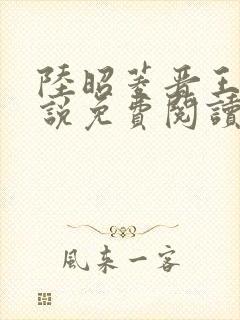 陸昭菱晉王
說免費閱讀
風來一客